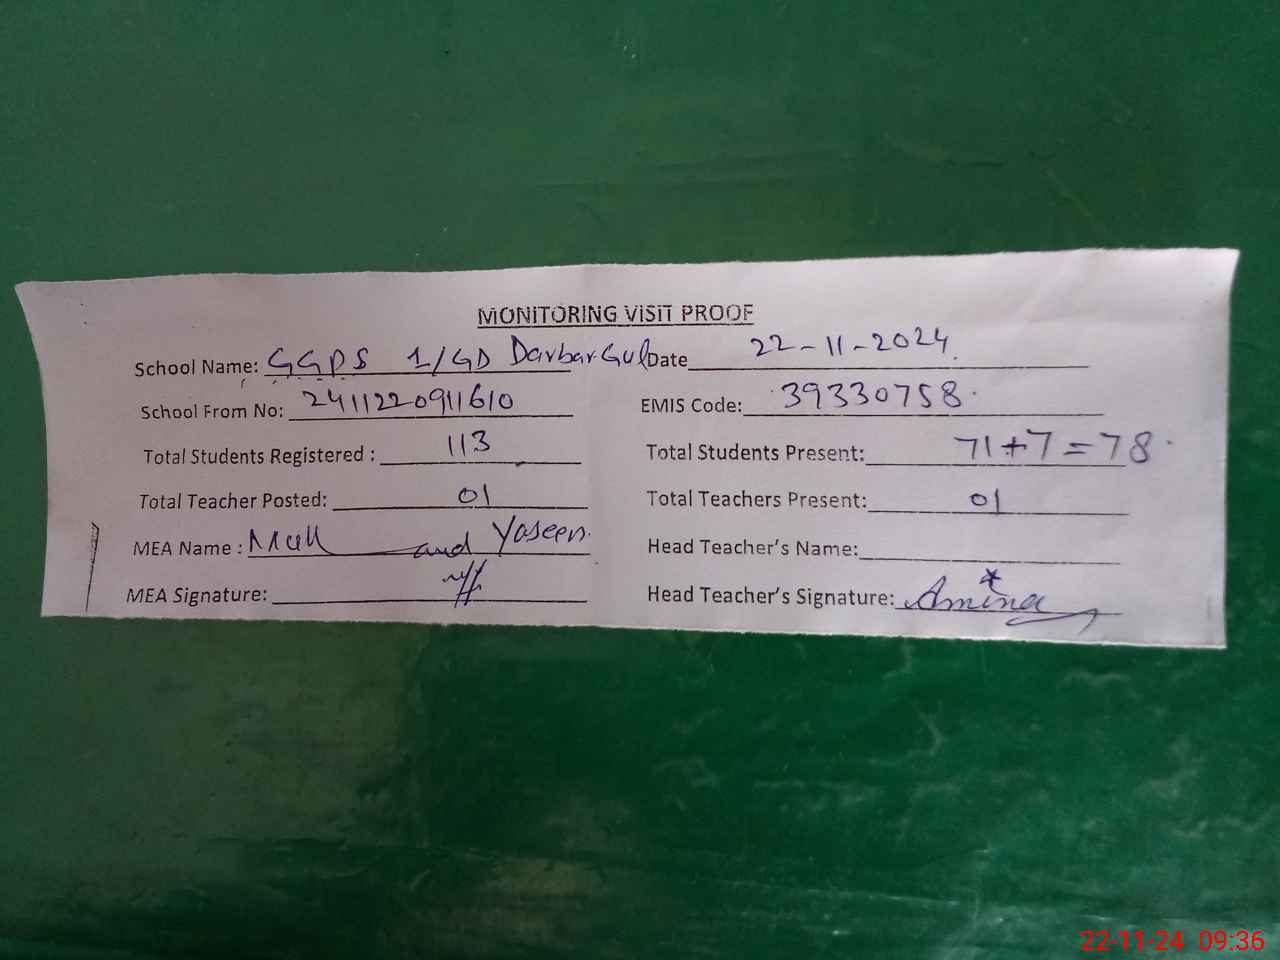 MONITORING VISIT PROOF
School Name: GGPS 1/GD Darbar Gul Date 22-11-2024.
School From No: 2411220911610 EMIS Code: 39330758.
Total Students Registered : 113 Total Students Present: 71+7=78.
Total Teacher Posted: 01 Total Teachers Present: 01
MEA Name : and Yaseen. Head Teacher's Name:
MEA Signature: Head Teacher's Signature: Amina
22-11-24 09:36